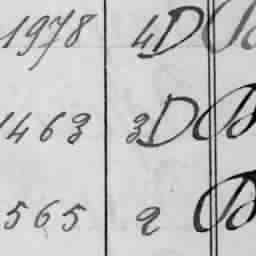 1978 4D
1463 3D
565 2